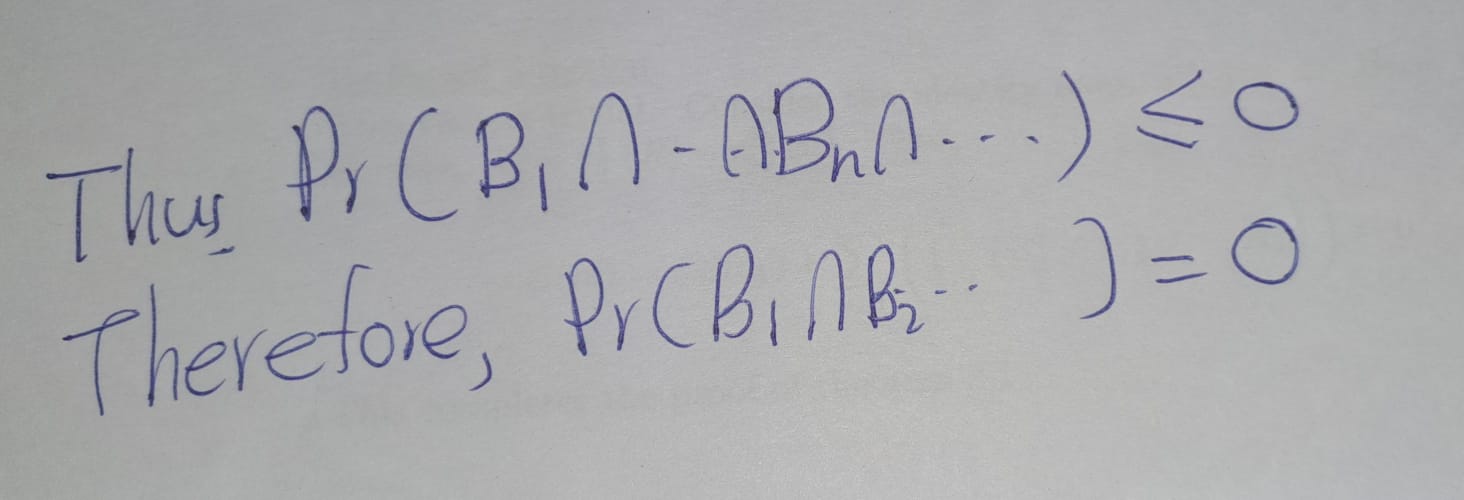 Thus Pr(B₁∩-∩Bₙ∩...) ≤ 0
Therefore, Pr(B₁∩B₂... ) = 0